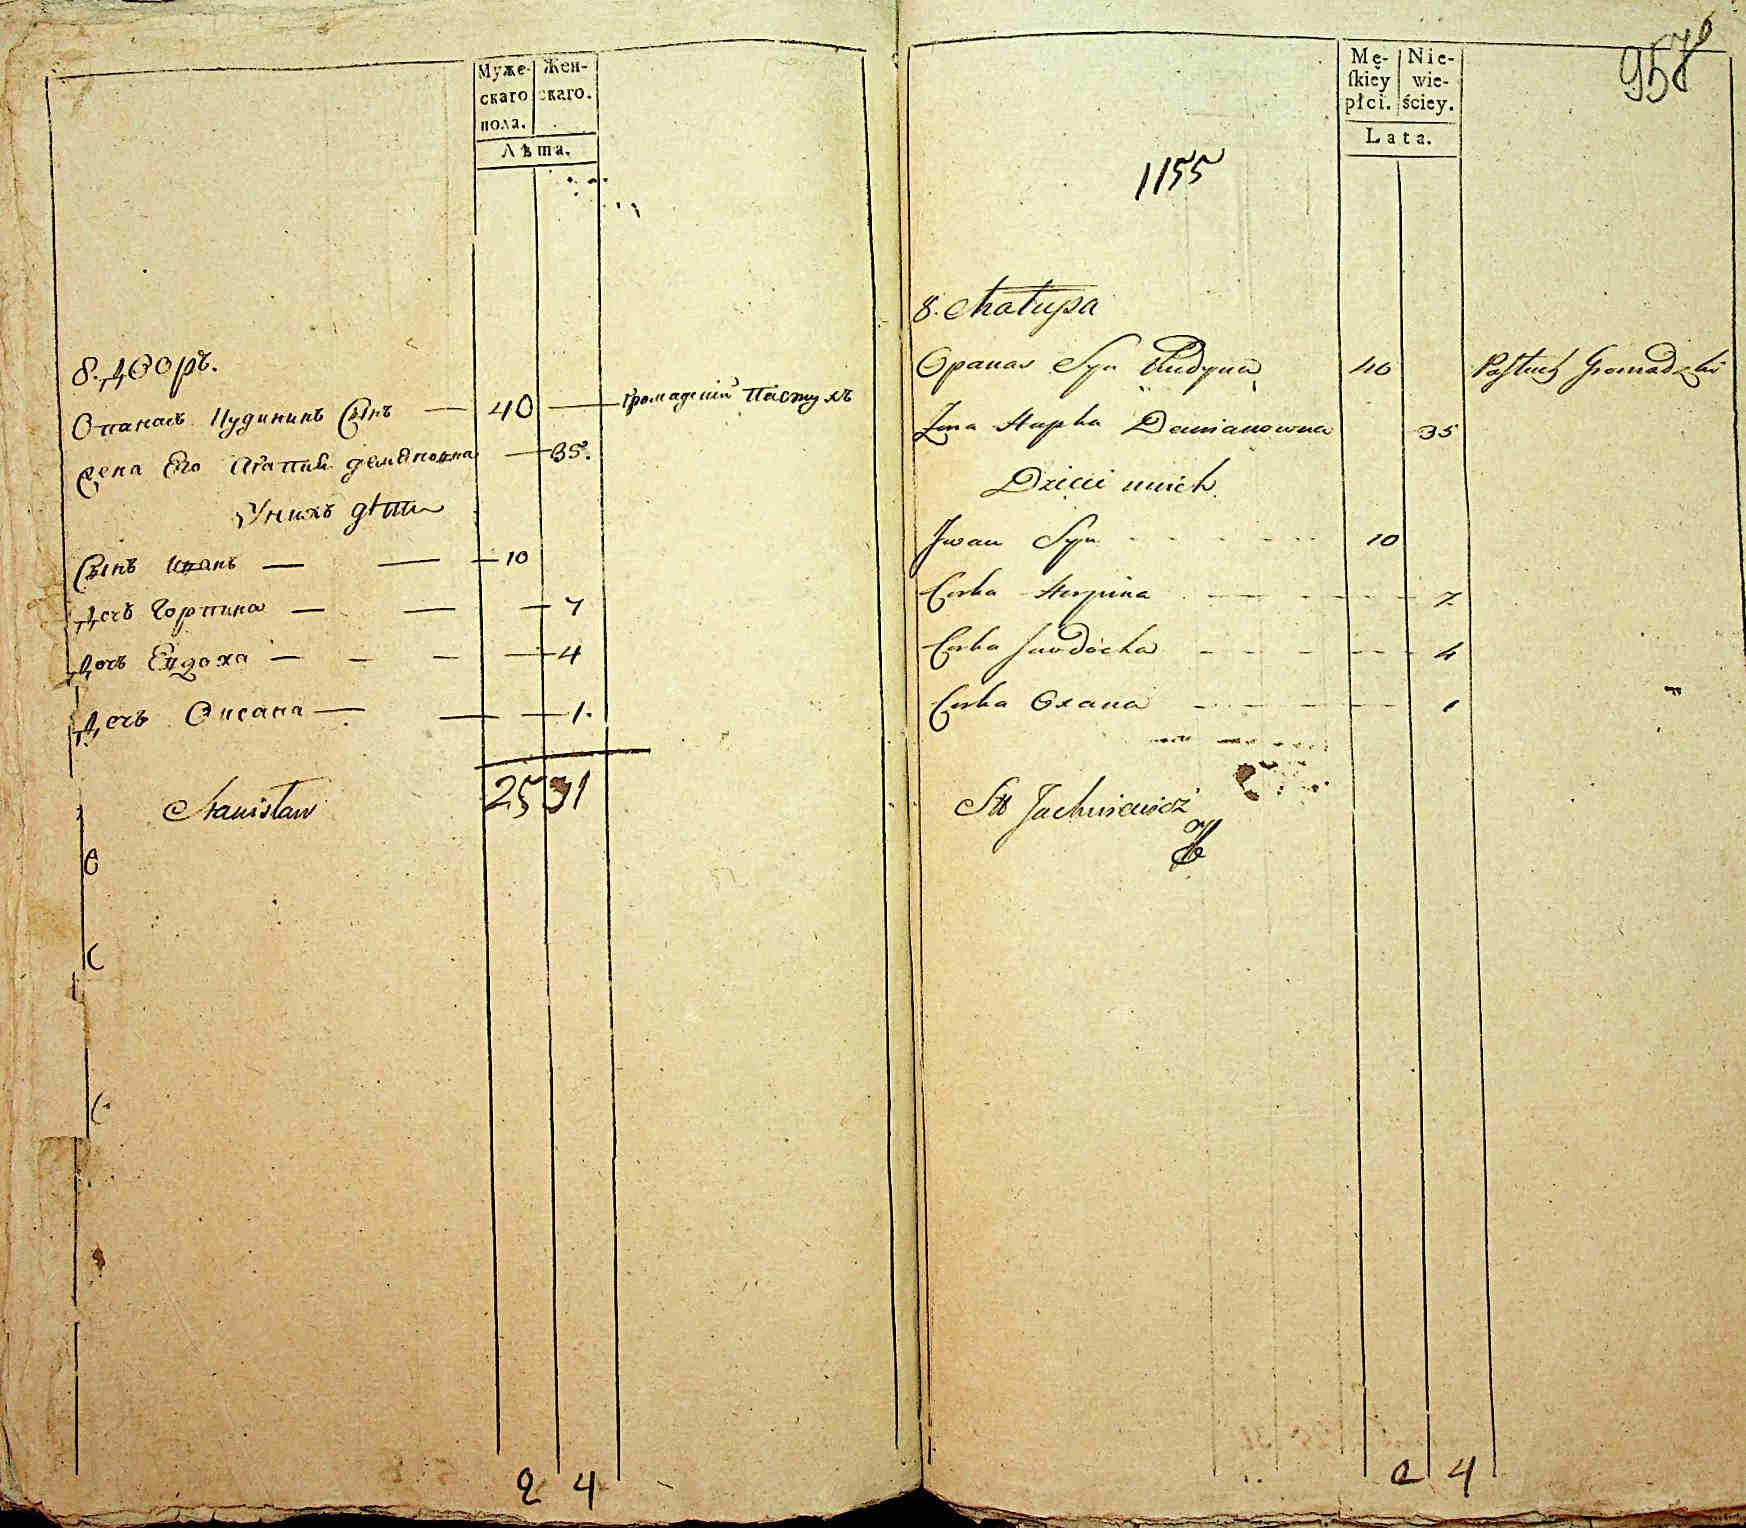 Муже-
скаго
пола.
Жен-
скаго.
Лѣта.
8. Дворъ.
Опанасъ Нудининъ Сынъ — 40 — громадскій Пастухъ
Жена Его Агапия Демяновна — 35.
У нихъ дѣти
Сынъ Иванъ — — 10
Дочь Горпина — — — 7
Дочь Евдоха — — — — 4
Дочь Оксана — — — 1.
25 31
Stanisław
2 4
957
Mę-
ſkiey
płci.
Nie-
wie-
ściey.
Lata.
1155
8. Chałupa
Opanas Syn 40 Paſtuch Gromadzki
Żona Hapka Demianowna 35
Dzieci unich
Jwan Syn 10
Corka Horpina 7
Corka Jawdocha 4
Corka Oxana 1
Jachniewicz
2 4